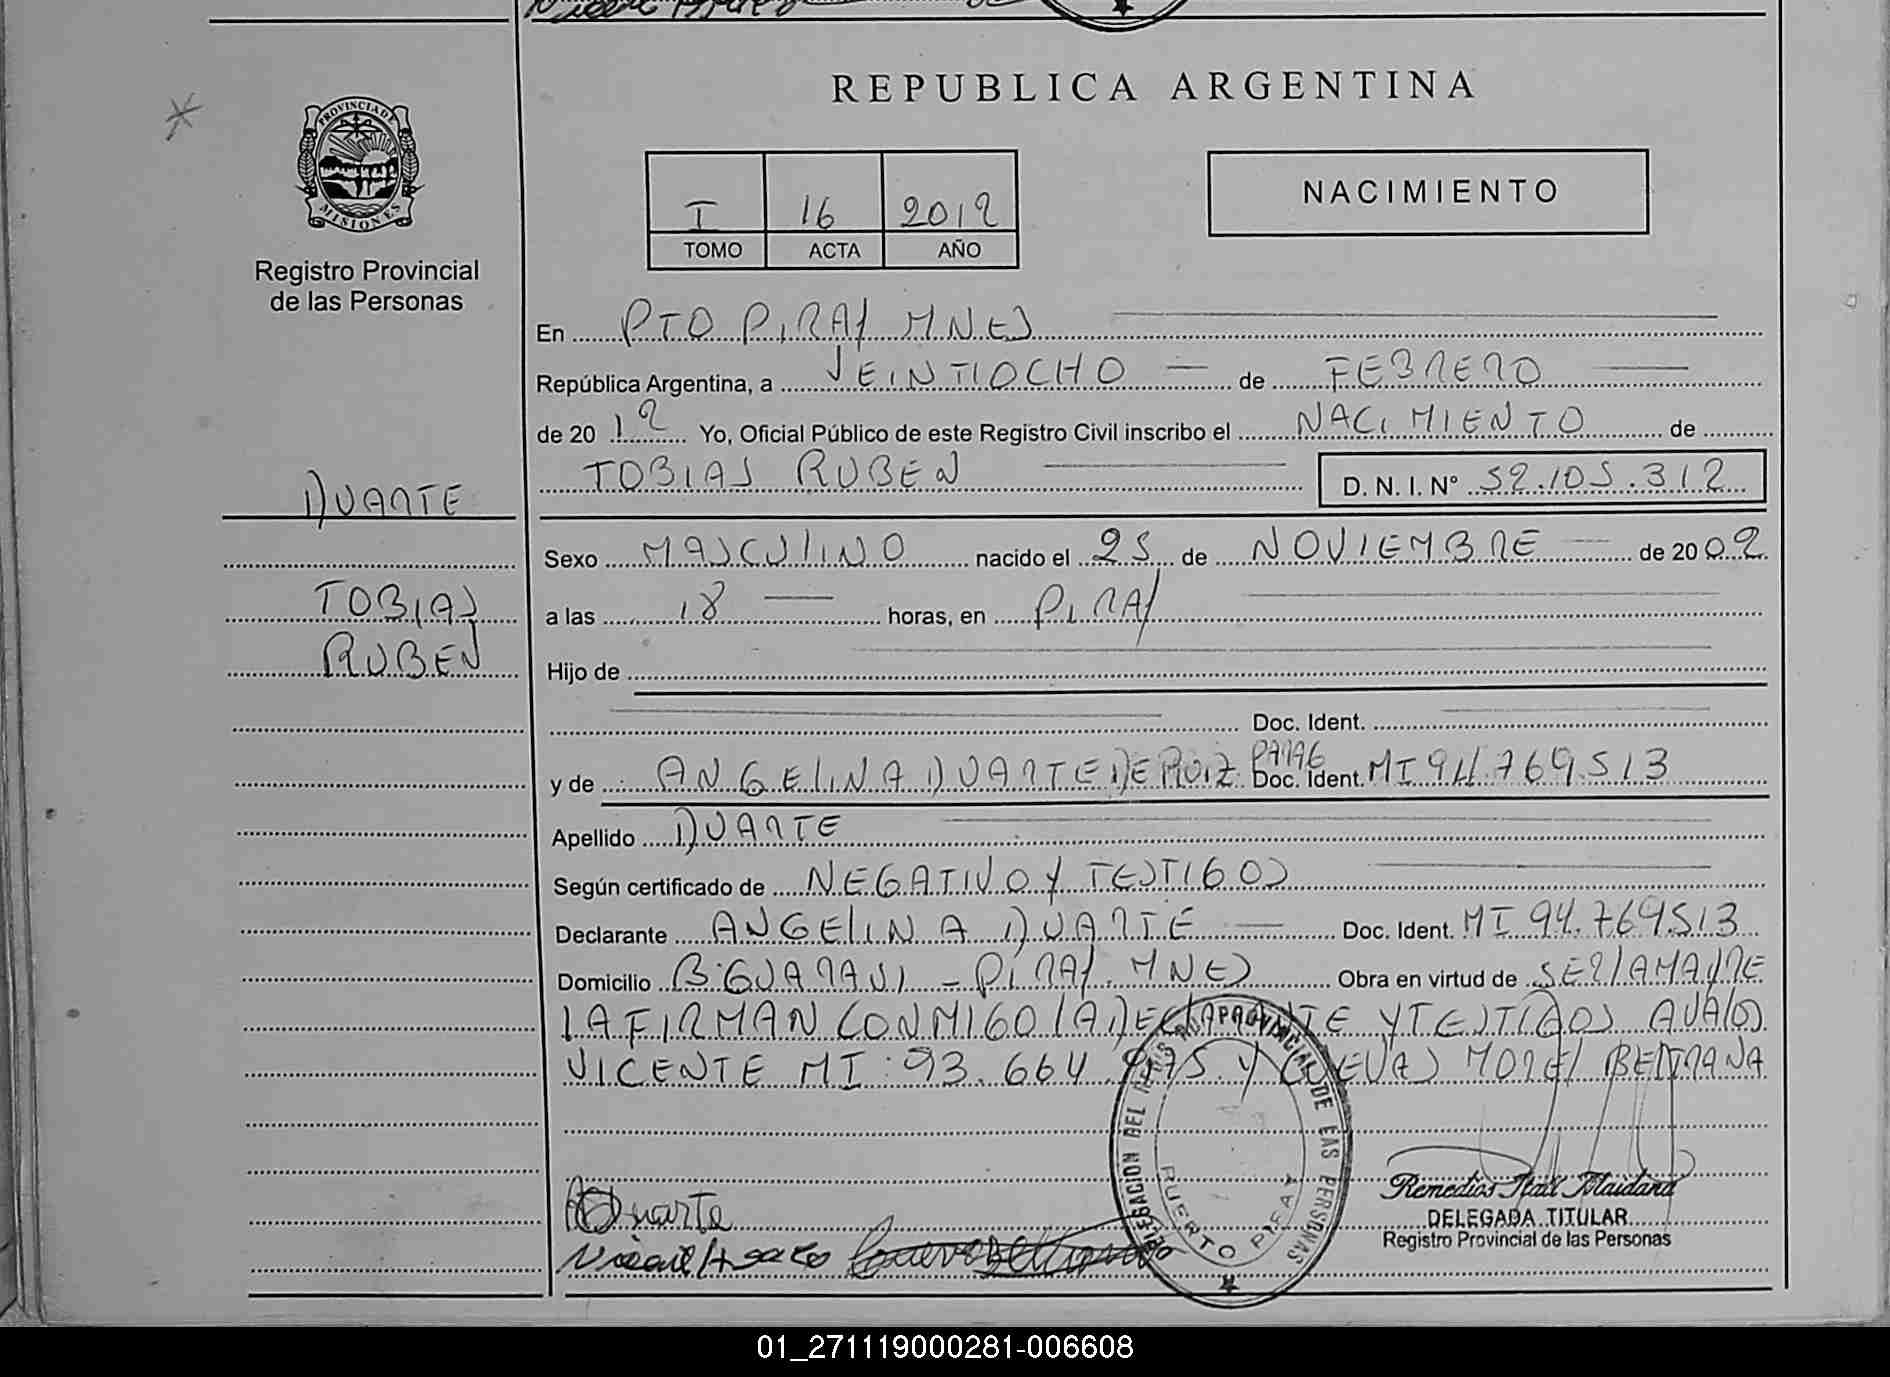 REPUBLICA ARGENTINA
PROVINCIA DE
MISIONES
Registro Provincial
de las Personas
I 16 2012
TOMO ACTA AÑO
NACIMIENTO
En PTO PIRAY MNES
República Argentina, a VEINTIOCHO de FEBRERO
de 20 12 Yo, Oficial Público de este Registro Civil inscribo el NACIMIENTO de
TOBIAS RUBEN D. N. I. N° 52.105.312
DUARTE
TOBIAS
RUBEN
Sexo MASCULINO nacido el 25 de NOVIEMBRE de 20 02
a las 18 horas, en PIRAY
Hijo de
Doc. Ident.
y de ANGELINA DUARTE DE RUIZ Doc. Ident. MI 94.769.513
Apellido DUARTE
Según certificado de NEGATIVO Y TESTIGOS
Declarante ANGELINA DUARTE Doc. Ident. MI 94.769.513
Domicilio Bº GUARANI - PIRAY. MNES Obra en virtud de SER LA MADRE
LA FIRMAN CONMIGO LA DECLARANTE Y TESTIGOS AVALOS
VICENTE MI: 93.664.975 Y CUEVAS MOREL BENTRANA
DELEGACION DEL REGISTRO PROVINCIAL DE LAS PERSONAS
PUERTO PIRAY
Duarte
Remedios Itatí Maidana
DELEGADA TITULAR
Registro Provincial de las Personas
01_271119000281-006608